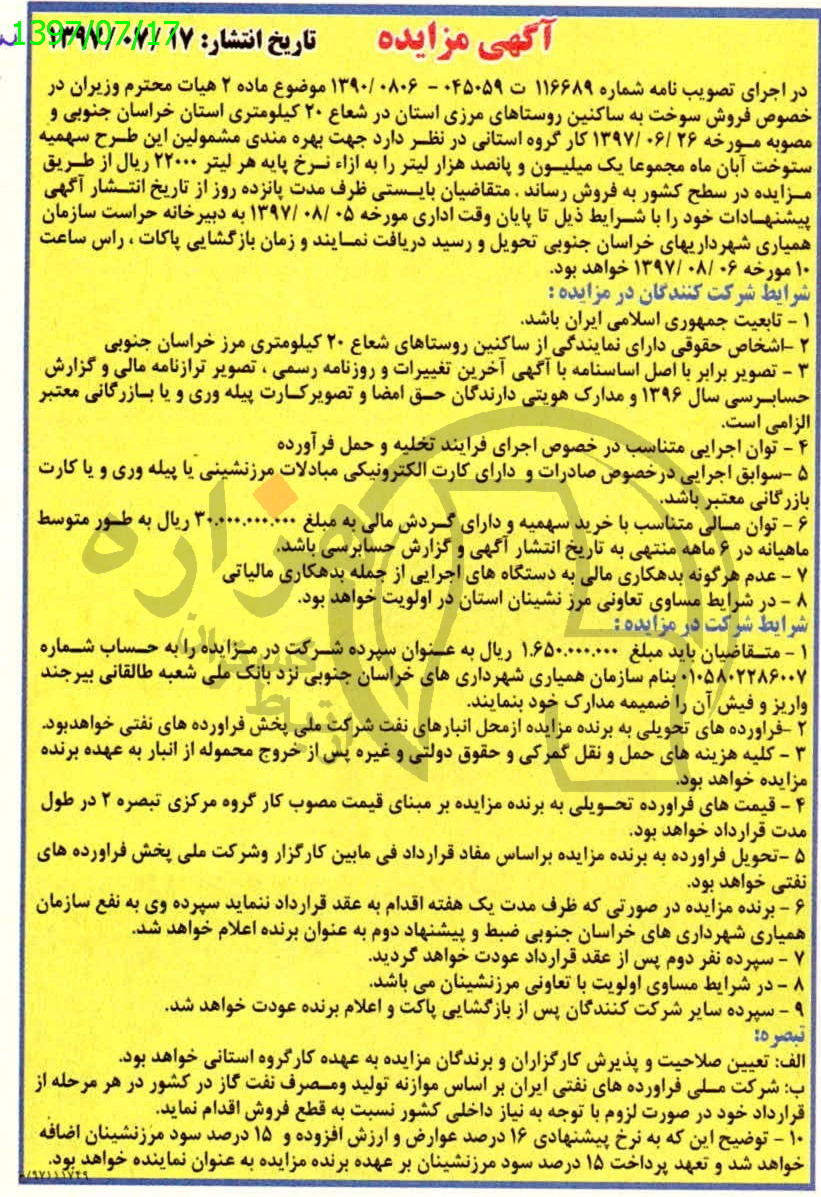 1397/07/17
آگهی مزایده
تاریخ انتشار: ۱۳۹۷/۰۷/۱۷
در اجرای تصویب نامه شماره ۱۱۶۶۸۹ ت ۰۴۵۰۵۹ - ۱۳۹۰/۰۸۰۶ موضوع ماده ۲ هیات محترم وزیران در
خصوص فروش سوخت به ساکنین روستاهای مرزی استان در شعاع ۲۰ کیلومتری استان خراسان جنوبی و
مصوبه مورخه ۱۳۹۷/۰۶/۲۶ کار گروه استانی در نظر دارد جهت بهره مندی مشمولین این طرح سهمیه
ستوخت آبان ماه مجموعا یک میلیون و پانصد هزار لیتر را به ازاء نرخ پایه هر لیتر ۲۲۰۰۰ ریال از طریق
مزایده در سطح کشور به فروش رساند . متقاضیان بایستی ظرف مدت پانزده روز از تاریخ انتشار آگهی
پیشنهادات خود را با شرایط ذیل تا پایان وقت اداری مورخه ۱۳۹۷/۰۸/۰۵ به دبیرخانه حراست سازمان
همیاری شهرداریهای خراسان جنوبی تحویل و رسید دریافت نمایند و زمان بازگشایی پاکات ، راس ساعت
۱۰ مورخه ۱۳۹۷/۰۸/۰۶ خواهد بود.
شرایط شرکت کنندگان در مزایده :
۱ - تابعیت جمهوری اسلامی ایران باشد.
۲ -اشخاص حقوقی دارای نمایندگی از ساکنین روستاهای شعاع ۲۰ کیلومتری مرز خراسان جنوبی
۳ - تصویر برابر با اصل اساسنامه با آگهی آخرین تغییرات و روزنامه رسمی ، تصویر ترازنامه مالی و گزارش
حسابرسی سال ۱۳۹۶ و مدارک هویتی دارندگان حق امضا و تصویرکارت پیله وری و یا بازرگانی معتبر
الزامی است.
۴ - توان اجرایی متناسب در خصوص اجرای فرایند تخلیه و حمل فرآورده
۵ -سوابق اجرایی درخصوص صادرات و دارای کارت الکترونیکی مبادلات مرزنشینی یا پیله وری و یا کارت
بازرگانی معتبر باشد.
۶ - توان مالی متناسب با خرید سهمیه و دارای گردش مالی به مبلغ ۳۰.۰۰۰.۰۰۰.۰۰۰ ریال به طور متوسط
ماهیانه در ۶ ماهه منتهی به تاریخ انتشار آگهی و گزارش حسابرسی باشد.
۷ - عدم هرگونه بدهکاری مالی به دستگاه های اجرایی از جمله بدهکاری مالیاتی
۸ - در شرایط مساوی تعاونی مرز نشینان استان در اولویت خواهد بود.
شرایط شرکت در مزایده :
۱ - متقاضیان باید مبلغ ۱.۶۵۰.۰۰۰.۰۰۰ ریال به عنوان سپرده شرکت در مزایده را به حساب شماره
۰۱۰۵۸۰۲۲۸۶۰۰۷ بنام سازمان همیاری شهرداری های خراسان جنوبی نزد بانک ملی شعبه طالقانی بیرجند
واریز و فیش آن را ضمیمه مدارک خود بنمایند.
۲ -فراورده های تحویلی به برنده مزایده ازمحل انبارهای نفت شرکت ملی پخش فراورده های نفتی خواهدبود.
۳ - کلیه هزینه های حمل و نقل گمرکی و حقوق دولتی و غیره پس از خروج محموله از انبار به عهده برنده
مزایده خواهد بود.
۴ - قیمت های فراورده تحویلی به برنده مزایده بر مبنای قیمت مصوب کار گروه مرکزی تبصره ۲ در طول
مدت قرارداد خواهد بود.
۵ -تحویل فراورده به برنده مزایده براساس مفاد قرارداد فی مابین کارگزار وشرکت ملی پخش فراورده های
نفتی خواهد بود.
۶ - برنده مزایده در صورتی که ظرف مدت یک هفته اقدام به عقد قرارداد ننماید سپرده وی به نفع سازمان
همیاری شهرداری های خراسان جنوبی ضبط و پیشنهاد دوم به عنوان برنده اعلام خواهد شد.
۷ - سپرده نفر دوم پس از عقد قرارداد عودت خواهد گردید.
۸ - در شرایط مساوی اولویت با تعاونی مرزنشینان می باشد.
۹ - سپرده سایر شرکت کنندگان پس از بازگشایی پاکت و اعلام برنده عودت خواهد شد.
تبصره:
الف: تعیین صلاحیت و پذیرش کارگزاران و برندگان مزایده به عهده کارگروه استانی خواهد بود.
ب: شرکت ملی فراورده های نفتی ایران بر اساس موازنه تولید ومصرف نفت گاز در کشور در هر مرحله از
قرارداد خود در صورت لزوم با توجه به نیاز داخلی کشور نسبت به قطع فروش اقدام نماید.
۱۰ - توضیح این که به نرخ پیشنهادی ۱۶ درصد عوارض و ارزش افزوده و ۱۵ درصد سود مرزنشینان اضافه
خواهد شد و تعهد پرداخت ۱۵ درصد سود مرزنشینان بر عهده برنده مزایده به عنوان نماینده خواهد بود.
۹۷۱۱۱۷۴۹/
هزاره